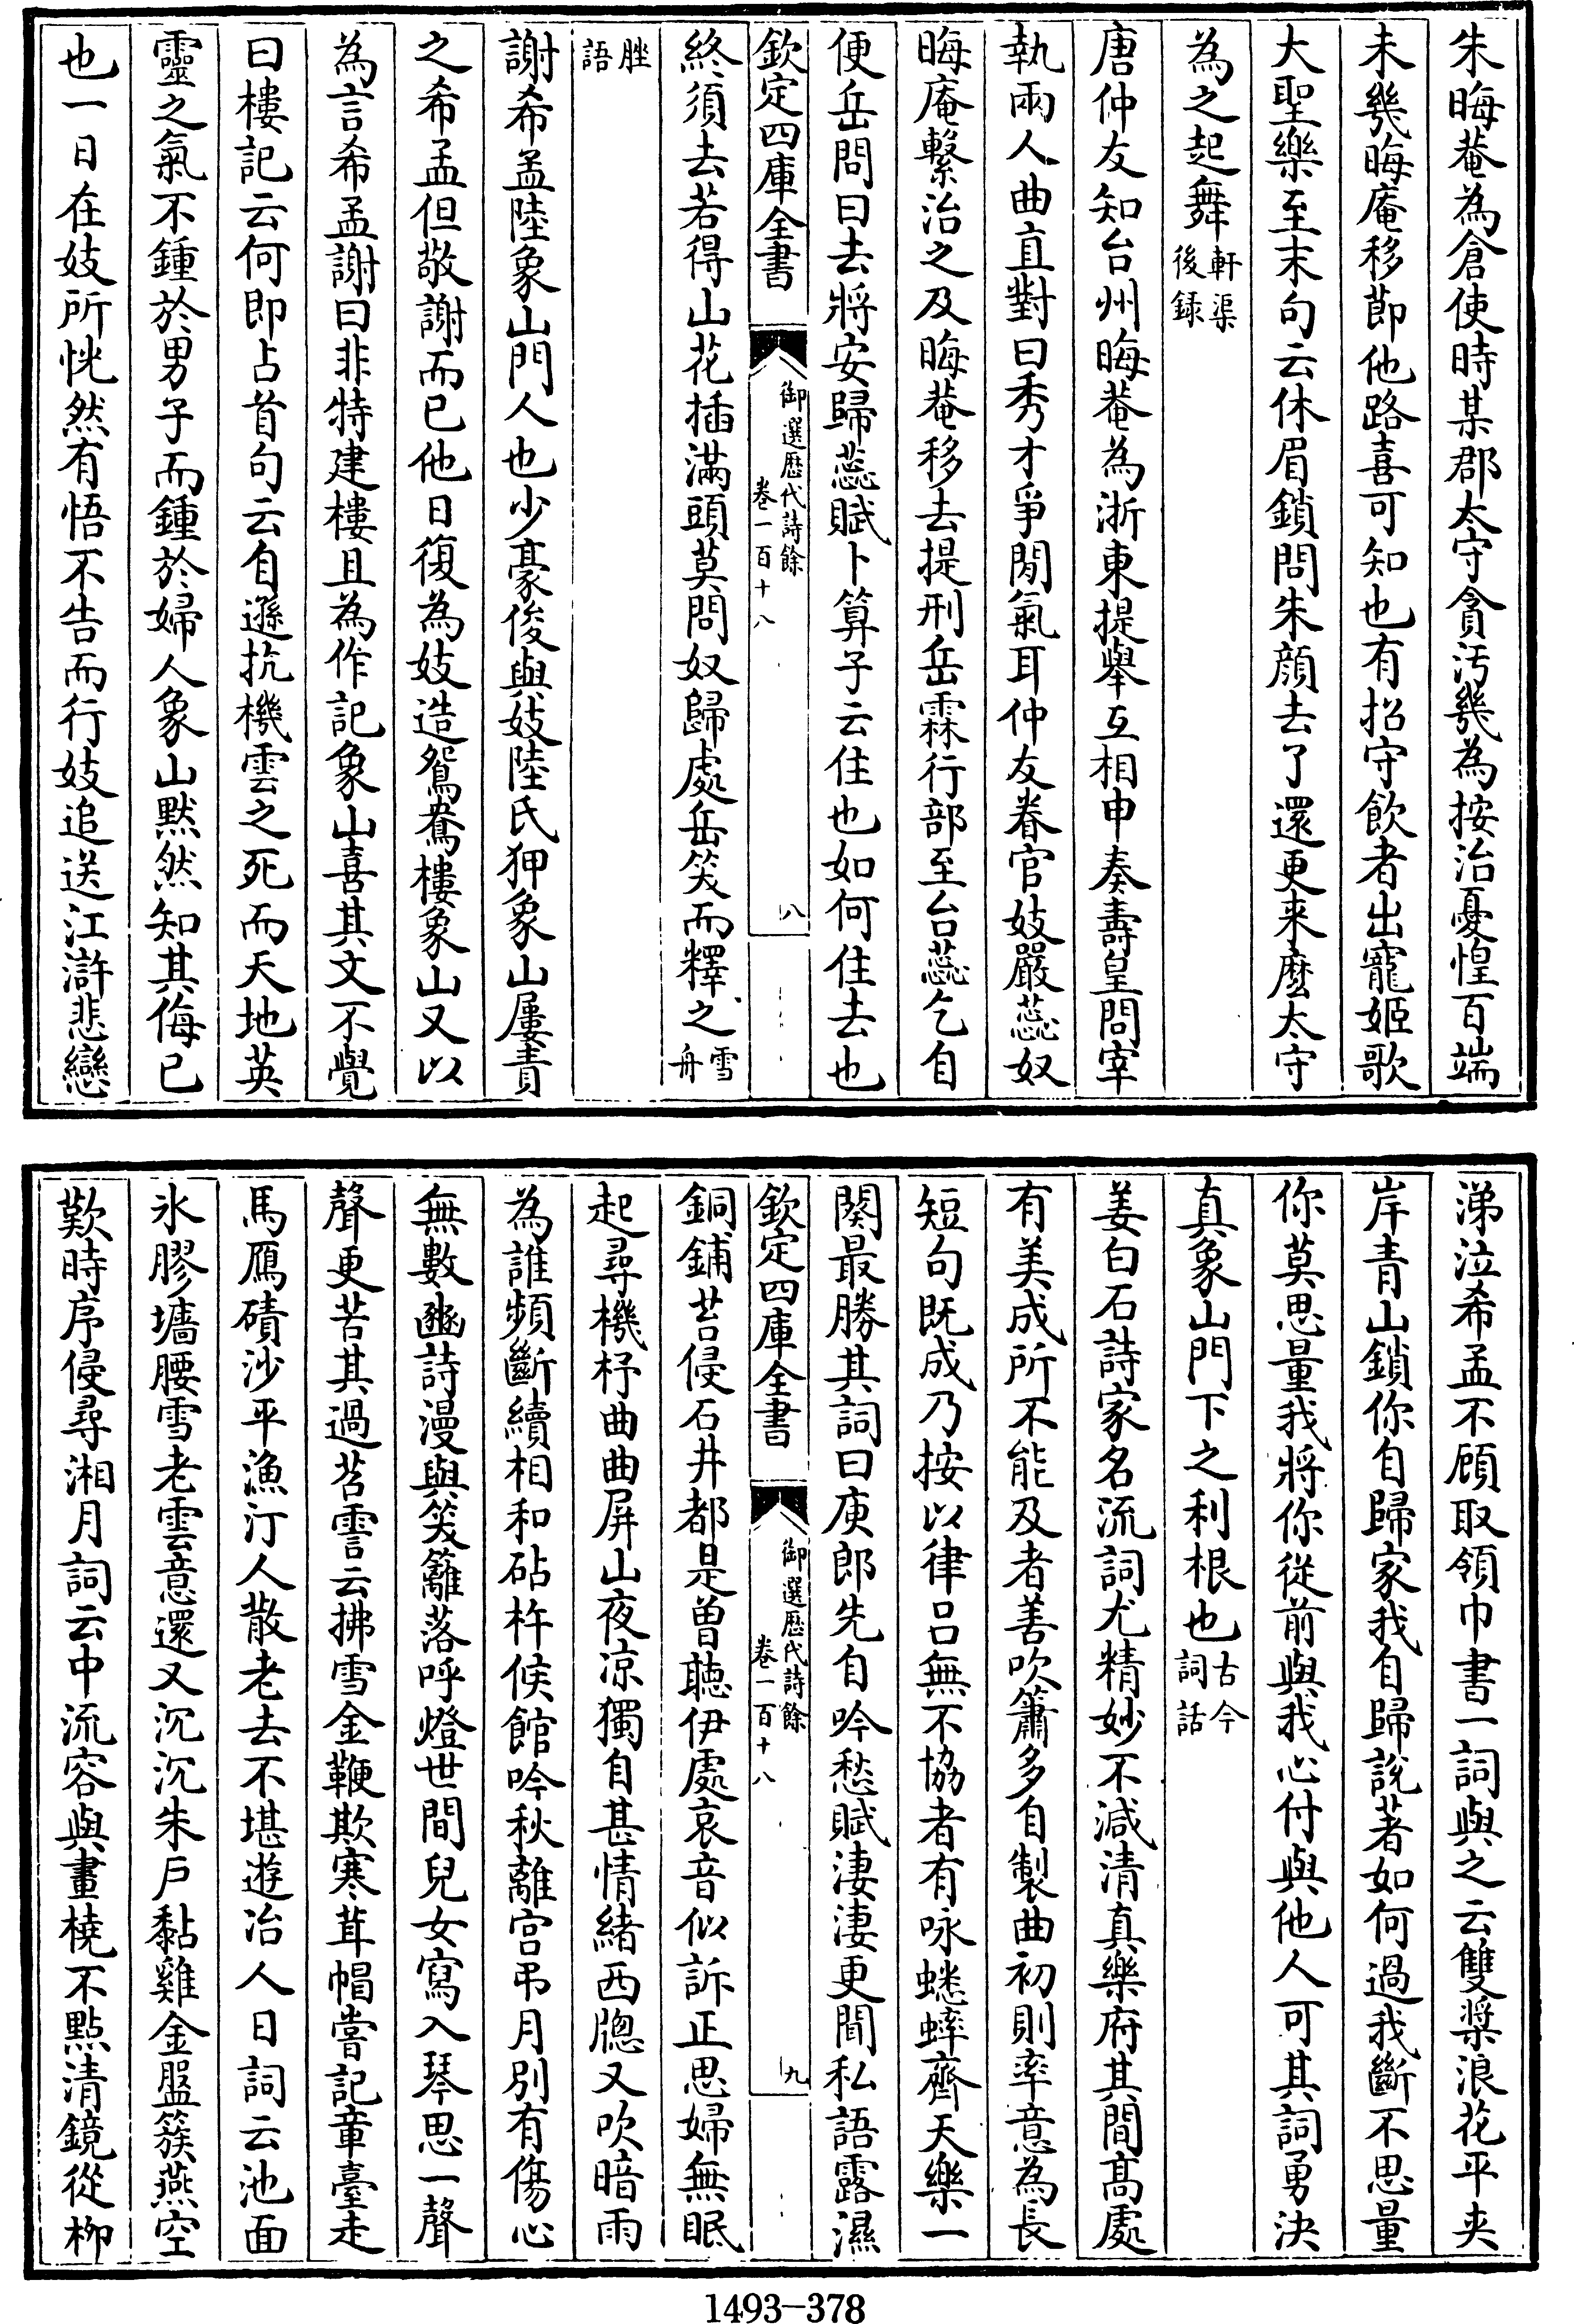 朱晦菴為倉使時某郡太守貪汚幾為按治憂惶百端
未幾晦庵移節他路喜可知也有招守飲者出寵姬歌
大聖樂至末句云休眉鎖問朱顔去了還更来麽太守
為之起舞軒渠後録
唐仲友知台州晦菴為浙東提舉互相申奏壽皇問宰
執兩人曲直對曰秀才爭閒氣耳仲友眷官妓嚴蕊奴
晦庵繫治之及晦菴移去提刑岳霖行部至台蕊乞自
便岳問曰去將安歸蕊賦卜算子云住也如何住去也
欽定四庫全書
御選歷代詩餘
卷一百十八
八
終須去若得山花插滿頭莫問奴歸處岳笑而釋之雪舟
脞語
謝希孟陸象山門人也少豪俊與妓陸氏狎象山屢責
之希孟但敬謝而已他日復為妓造鴛鴦樓象山又以
為言希孟謝曰非特建樓且為作記象山喜其文不覺
曰樓記云何即占首句云自遜抗機雲之死而天地英
靈之氣不鍾於男子而鍾於婦人象山黙然知其侮已
也一日在妓所恍然有悟不告而行妓追送江滸悲戀
涕泣希孟不顧取領巾書一詞與之云雙槳浪花平夹
岸青山鎖你自歸家我自歸說著如何過我斷不思量
你莫思量我將你從前與我心付與他人可其詞勇決
真象山門下之利根也古今詞話
姜白石詩家名流詞尤精妙不減清真樂府其間髙處
有美成所不能及者善吹簫多自製曲初則率意為長
短句既成乃按以律呂無不協者有咏蟋蟀齊天樂一
闋最勝其詞曰庾郎先自吟愁賦淒淒更聞私語露濕
欽定四庫全書
御選歷代詩餘
卷一百十八
九
銅鋪苔侵石井都是曾聽伊處哀音似訴正思婦無眠
起尋機杼曲曲屏山夜凉獨自甚情緒西牕又吹暗雨
為誰頻斷續相和砧杵候館吟秋離宫弔月別有傷心
無數豳詩漫與笑籬落呼燈世間兒女寫入琴思一聲
聲更苦其過苕霅云拂雪金鞭欺寒茸帽嘗記章臺走
馬鴈磧沙平漁汀人散老去不堪遊冶人日詞云池面
氷膠墻腰雪老雲意還又沉沉朱戶黏雞金盤簇燕空
歎時序侵尋湘月詞云中流容與畫橈不點清鏡從栁
1493-378